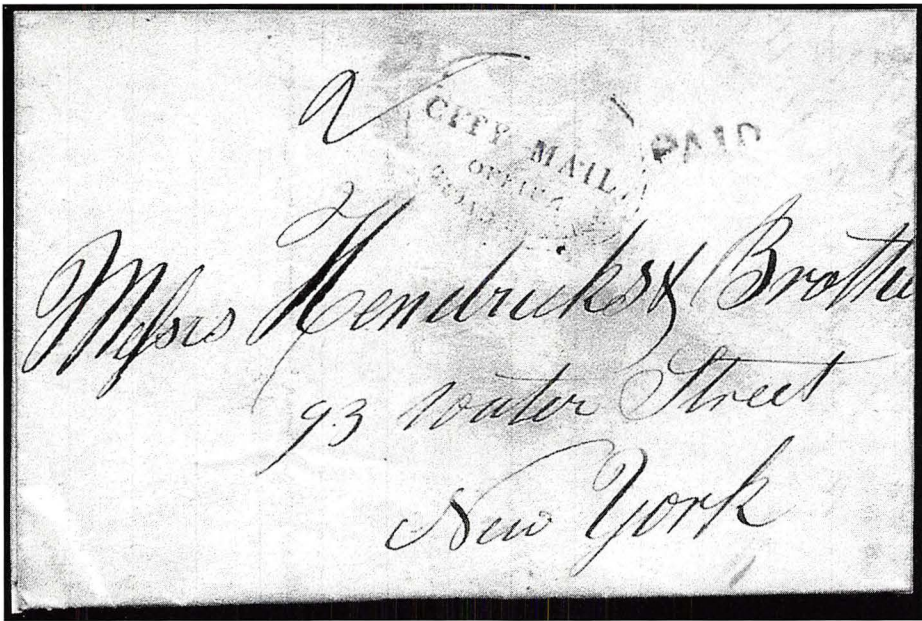 2
CITY MAIL
OFFICE
PAID
Messrs Hendricks & Brothe
93 water Street
New York